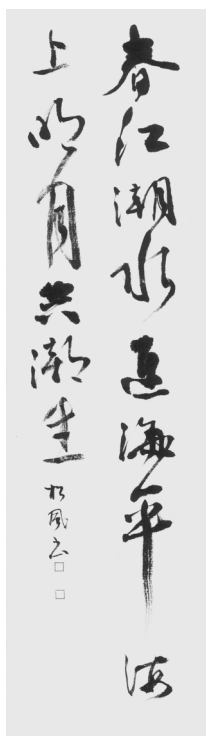 春江潮水连海平海
上明月共潮生
松风书